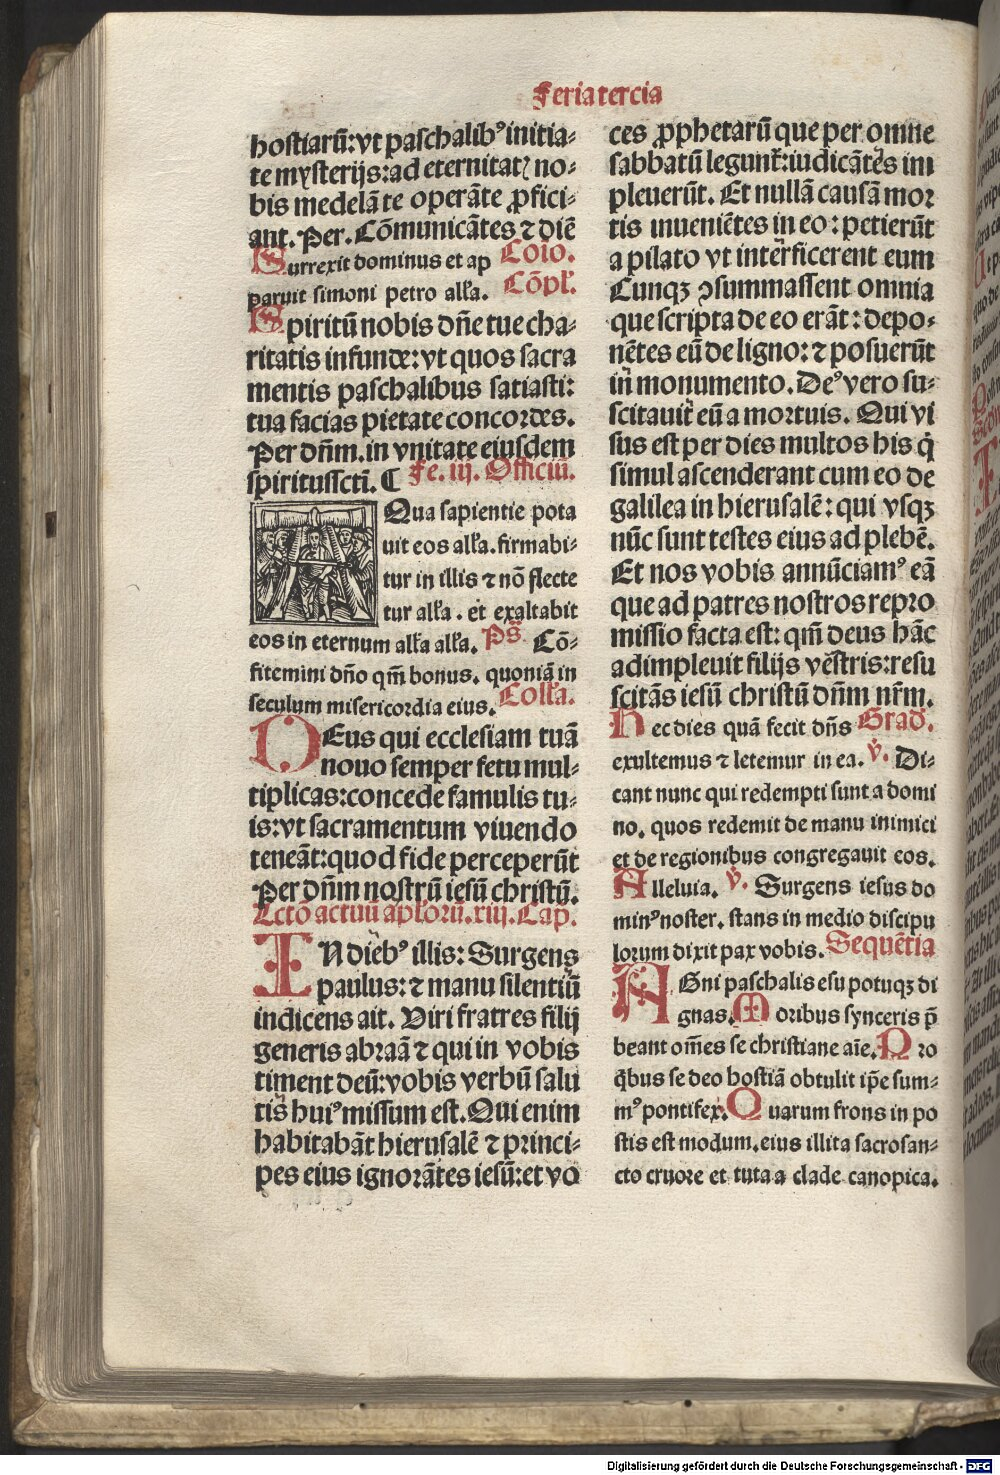 Feria tercia
hostiarū: vt paschalibꝰ initia-
te mysterijs: ad eternitatꝫ no-
bis medelā te operāte ꝓfici-
ant. Per. Cōmunicātes ⁊ diē
Surrexit dominus et ap Cōio.
paruit simoni petro alľa. Cōpľ.
Spiritū nobis dn̄e tue cha-
ritatis infunde: vt quos sacra
mentis paschalibus satiasti:
tua facias pietate concordes.
Per dn̄m. in vnitate eiusdem
spiritussctī. ¶ Fe. iij. Officiū.
Qua sapientie pota
uit eos alľa. firmabi-
tur in illis ⁊ nō flecte
tur alľa. et exaltabit
eos in eternum alľa alľa. Ps̄. Cō-
fitemini dn̄o qm̄ bonus. quoniā in
seculum misericordia eius. Colľa.
DEus qui ecclesiam tuā
nouo semper fetu mul-
tiplicas: concede famulis tu-
is: vt sacramentum viuendo
teneāt: quod fide perceperūt
Per dn̄m nostrū iesū christū.
Lctō actuū apľorū. xiij. Cap.
IN diebꝰ illis: Surgens
paulus: ⁊ manu silentiū
indicens ait. Viri fratres filij
generis abraā ⁊ qui in vobis
timent deū: vobis verbū salu
tis huiꝰ missum est. Qui enim
habitabāt hierusalē ⁊ princi-
pes eius ignorātes iesū: et vo
ces ꝓphetarū que per omne
sabbatū legunt᷑: iudicātes im
pleuerūt. Et nullā causā mor
tis inueniētes in eo: petierūt
a pilato vt interficerent eum
Cunqꝫ ꝯsummassent omnia
que scripta de eo erāt: depo-
nētes eū de ligno: ⁊ posuerūt
in monumento. Deꝰ vero su-
scitauit eū a mortuis. Qui vi
sus est per dies multos his q̇
simul ascenderant cum eo de
galilea in hierusalē: qui vsqꝫ
nūc sunt testes eius ad plebē.
Et nos vobis annūciamꝰ eā
que ad patres nostros repro
missio facta est: qm̄ deus hāc
adimpleuit filijs vestris: resu
scitās iesū christū dn̄m nr̄m.
Hec dies quā fecit dn̄s Grad.
exultemus ⁊ letemur in ea. V̇. Di-
cant nunc qui redempti sunt a domi
no. quos redemit de manu inimici
et de regionibus congregauit eos.
Alleluia. V̇. Surgens iesus do
minꝰ noster. stans in medio discipu
lorum dixit pax vobis. Sequētia
AGni paschalis esu potuqꝫ di
gnas. Moribus synceris p̄
beant om̄es se christiane aīe. Pro
q̇bus se deo hostiā obtulit ip̄e sum-
mꝰ pontifex. Quarum frons in po
stis est modum. eius illita sacrosan-
cto cruore et tuta a clade canopica.
Digitalisierung gefördert durch die Deutsche Forschungsgemeinschaft - DFG